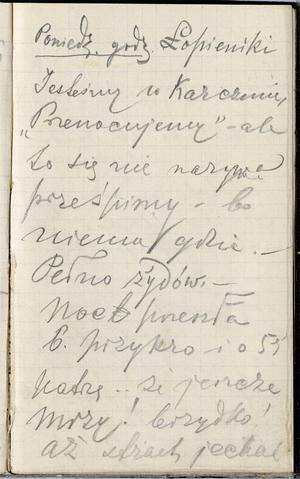 Poniedz. godz. Łopieniki
Jesteśmy w Karczmie,
„Przenocujemy" - ale
to się nie nazywa
prześpimy - bo
niema gdzie. -
Pełno żydów. -
Noc przeszła
b. przykro - i o 5½
patrzę - że jeszcze
mrozy! brzydko!
aż strach jechać